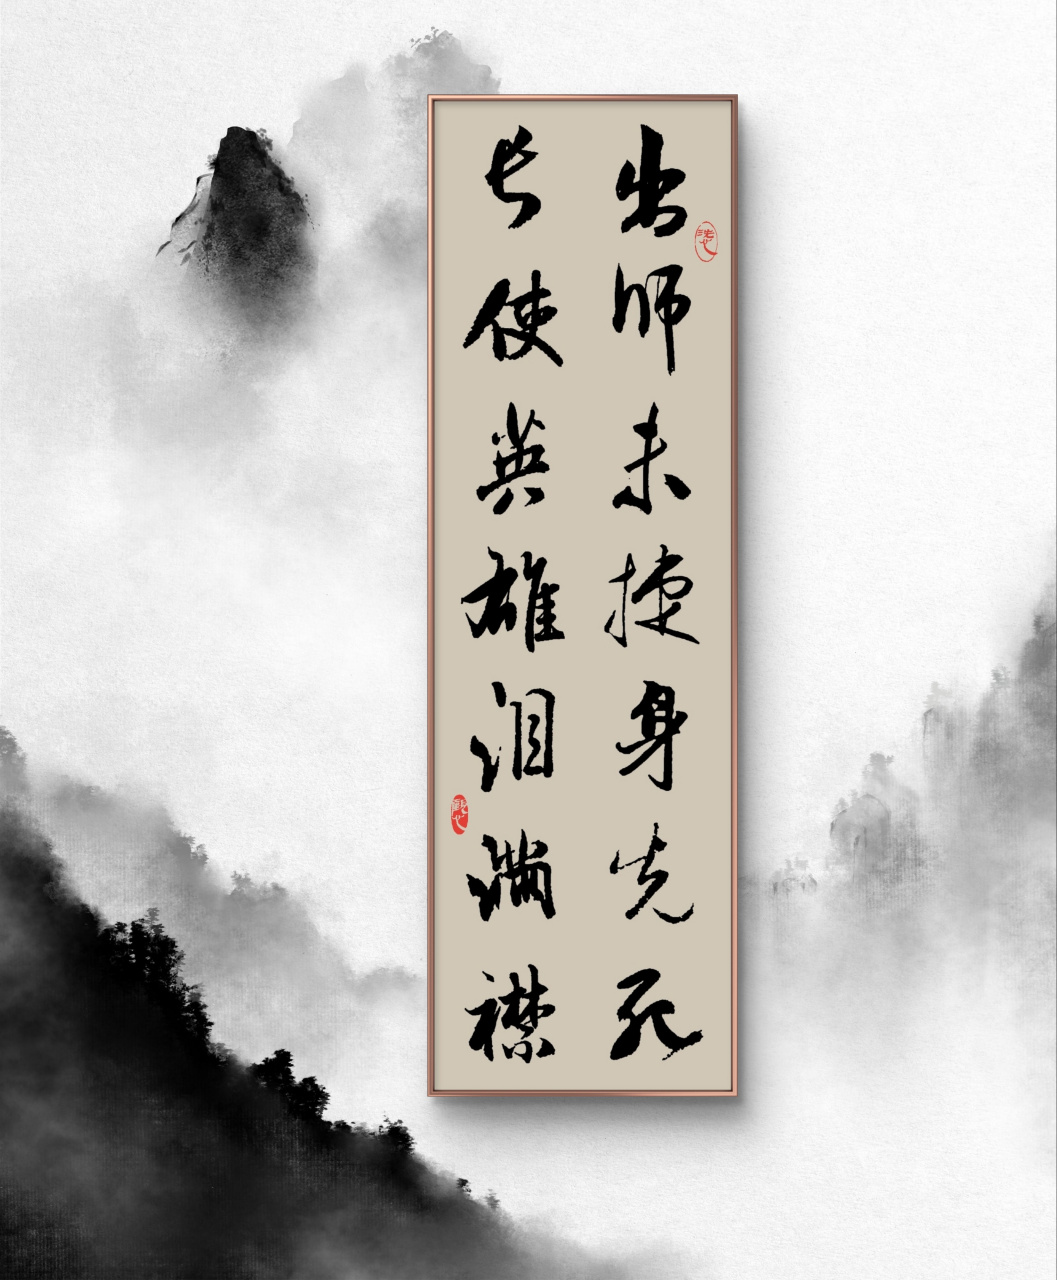 出师未捷身先死
长使英雄泪满襟